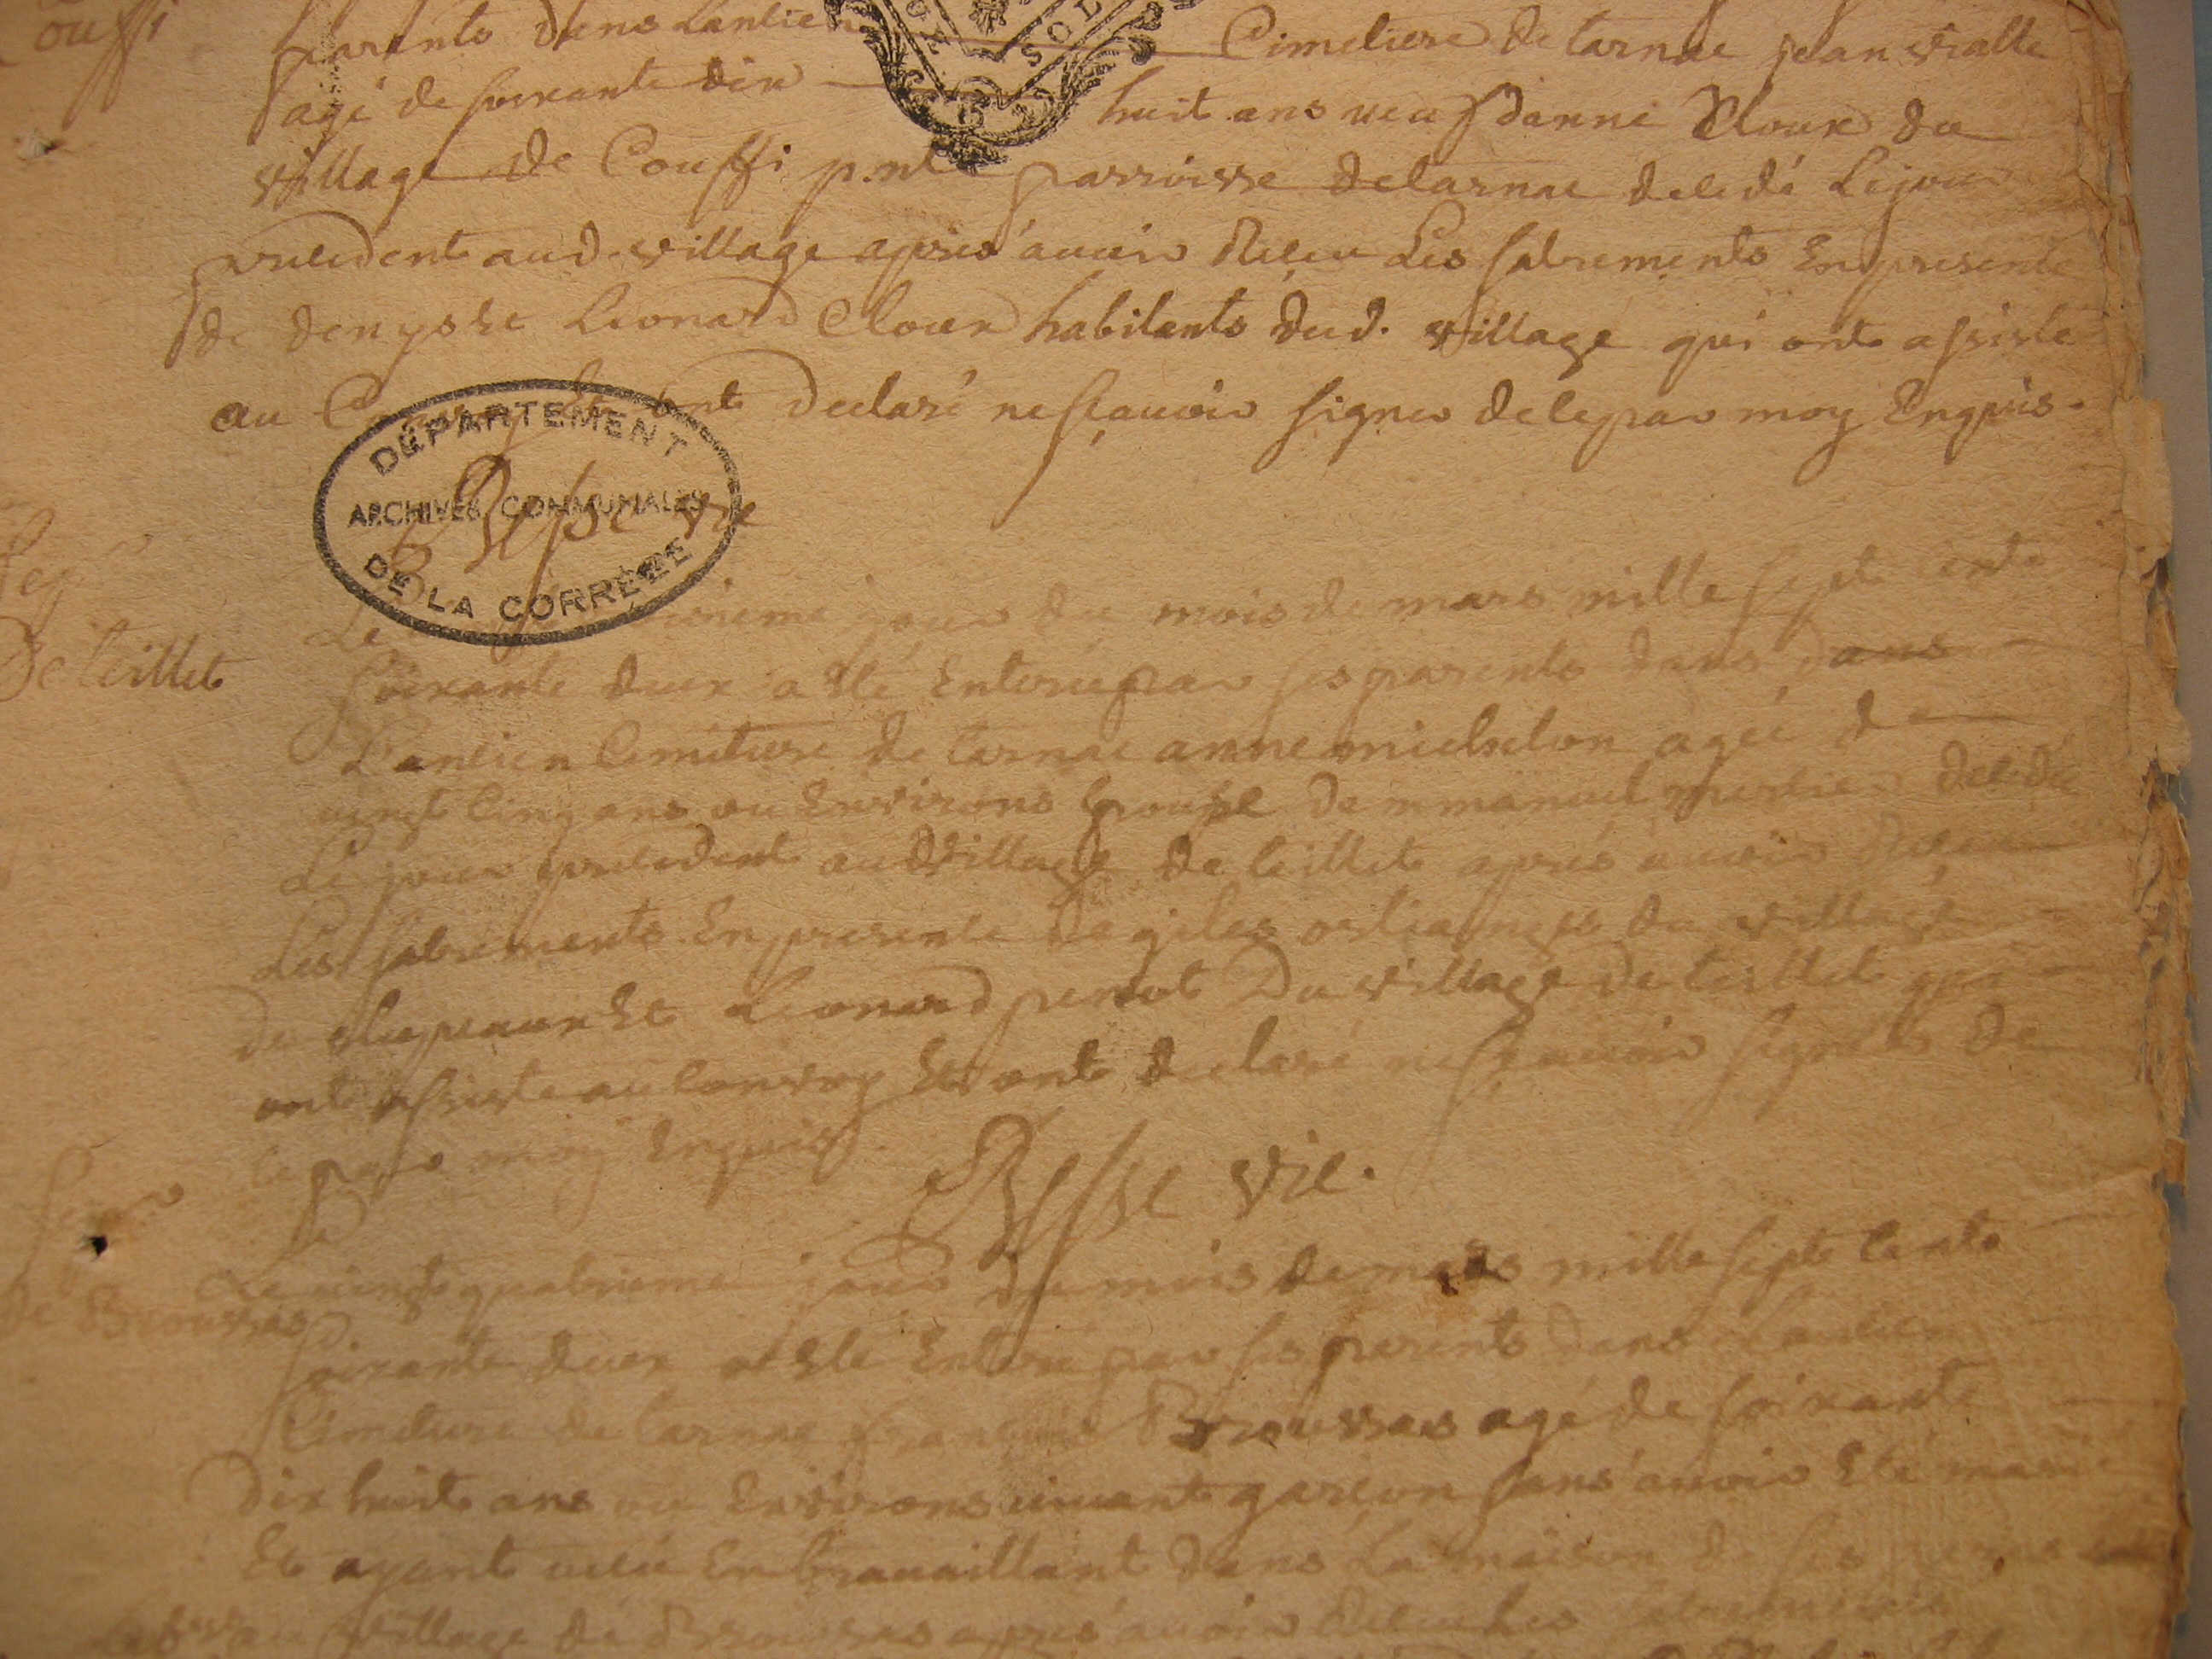 Couffi
parents dans lantien Cimetiere de tarnac jean vialle
agé de soixante dix huit ans ueuf danne Cloux du
village de Couffi p.nte parroisse de tarnac decedé le jour
precedent aud. village apres auoir Receu les sacrements En presence
de denys Et Leonard Cloux habitants dud. village qui ont assisté
au Conuoy Et ont declaré ne sçauoir signer de ce par moy Enquis.
DÉPARTEMENT
ARCHIVES COMMUNALES
DE LA CORRÈZE
Bysse vic
Le jour du mois de mars mille sept cents
De teillet
soixante deux a Eté Enterré par ses parents dans dans
L'antien Cimetiere de tarnac anne michelon agée de
uingt Cinq ans ou Environs Epouse demmanuel decedée
Le jour precedent aud village de teillet apres auoir Receu
Les sacrements En presence de giles du village
de Et Leonard penot Du village de teillet qui
ont assisté au Conuoy Et ont declaré ne sçauoir signer de
ce par moy Enquis.
Bysse vic.
Le uingt quatrieme jour du mois de mars mille sept cents
de Broussas
soixante deux a Eté Enterré par ses parents dans Lantien
Cimetiere de tarnac françois Broussas agé de soixante
Dix huit ans ou Environs uiuant garçon sans auoir Eté marié
Et ayant uecu En trauaillant dans La maison de ses
au village de Broussas apres auoir Receu Les sacrements